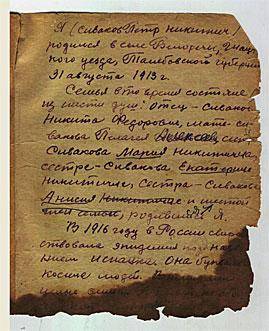 Я (Сиваков Петр Никитич)
родился в селе
ного уезда, Тамбовской губернии
31 августа 1913 г.
Семья в то время состояла
из шести душ: Отец - Сиваков
Никита Федорович, мать - Си-
вакова Пелагея
Сивакова Мария Никитична,
сестра - Сивакова Екатерина
Никитична, сестра - Сивакова
Анисия Никитична и шестой
член семьи, родившийся Я.
В 1916 году в России
ствовала эпидемия под наз-
ванием испанка. Она
косила людей.